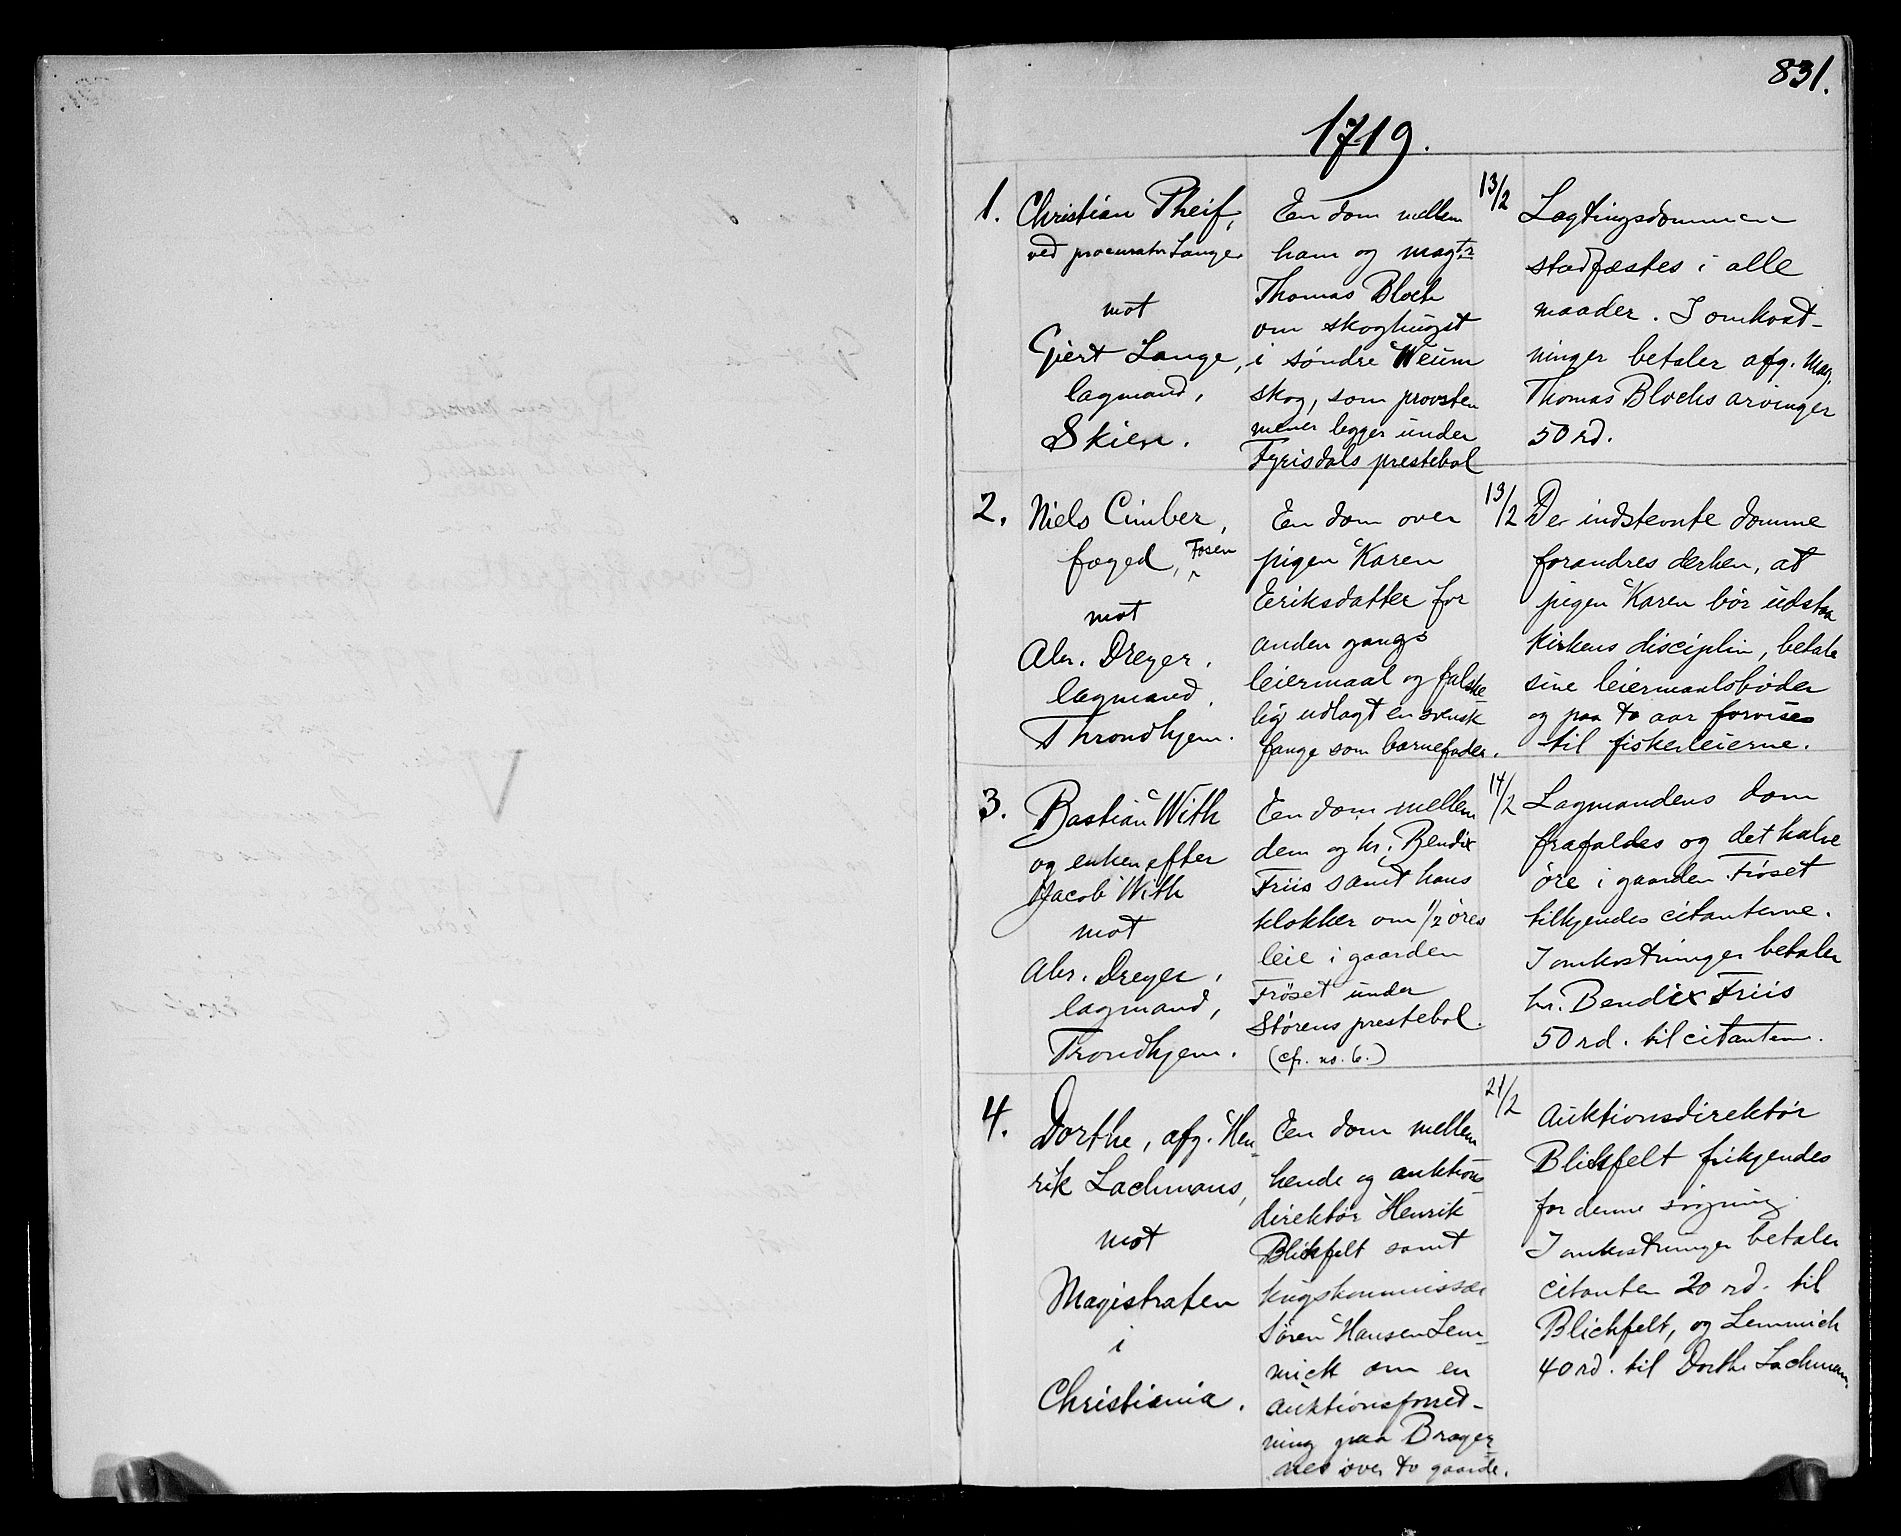 831.
1719.
1. Christian Pheif,
ved procurator Lange
mot
Giert Lange,
lagmand,
Skien.
En dom mellem
ham og magtr
Thomas Bloch
om skoghugst
i søndre Weum
skog, som provsten
mener legger under
Fyrisdals prestebol
13/2
Lagtingsdommen
stadfæstes i alle
maader. I omkost-
ninger betaler afg. Mag.
Thomas Blochs arvinger
50 rd.
2. Niels Cimber,
foged, Fosen
mot
Abr. Dreyer,
lagmand,
Throndhjem.
En dom over
pigen Karen
Eriksdatter for
anden gangs
leiermaal og falske
lig udlagt en svensk
fange som barnefader.
13/2
De indstevnte domme
forandres derhen, at
pigen Karen bør udstaa
kirkens disciplin, betale
sine leiermaalsbøder
og paa to aar forvises
til fiskerleierne.
3. Bastian With
og enken efter
Jacob With
mot
Abr. Dreyer,
lagmand,
Trondhjem.
En dom mellem
dem og hr. Bendix
Friis samt hans
klokker om 1/2 øres
leie i gaarden
Frøset under
Størens prestebol.
(cfr. no. 6.)
14/2
Lagmandens dom
frafaldes og det halve
øre i gaarden Frøset
tilkjendes citanterne.
I omkostninger betaler
hr. Bendix Friis
50 rd. til citanterne.
4. Dorthe, afg. Hen-
rik Lachmans,
mot
Magistraten
i
Christiania.
En dom mellem
hende og auktions-
direktør Henrik
Blichfelt samt
krigskommissær
Søren Hansen Lem-
mich om en
auktionsforret-
ning paa Brager-
nes over to gaarde.
21/2
Auktionsdirektør
Blichfelt frikjendes
for denne søgning.
I omkostninger betaler
citanten 20 rd. til
Blichfelt, og Lemmich
40 rd. til Dorthe Lachmans.